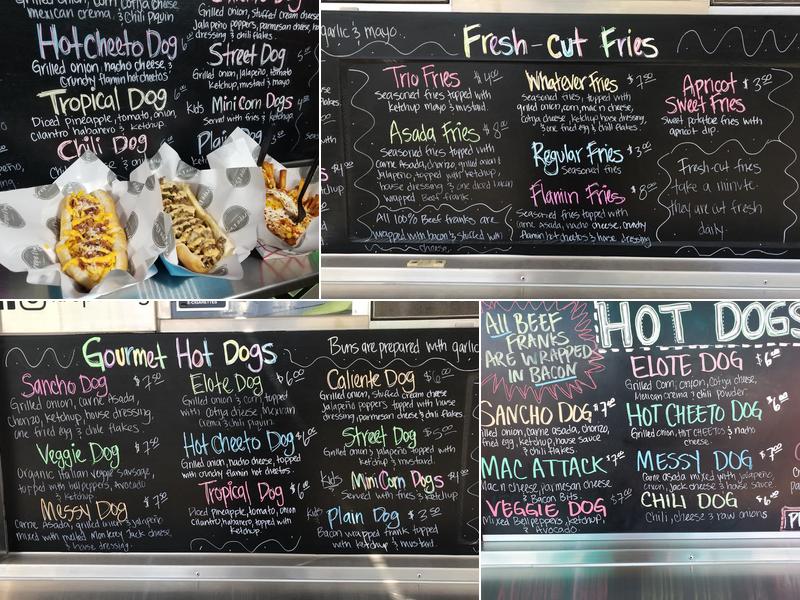 mexican crema, & chili piquin
Hot Cheeto Dog 6
Grilled onion, nacho cheese, &
Crunchy flamin hot cheetos
Tropical Dog
Diced pineapple, tomato, onion,
cilantro habanero & ketchup.
Chili Dog
Grilled onion, stuffed cream cheese
Jalapeño poppers, parmesan cheese, ho
dressing & chili flakes.
Street Dog
Grilled onion, jalapeño, tomato
ketchup, mustard & mayo.
kids Mini Corn Dogs
Served with fries & ketchup
Plain Dog
garlic & mayo.
Fresh-cut Fries
Trio Fries $4.00
Seasoned fries topped with
ketchup mayo & mustard.
Asada Fries $8.00
Seasoned fries topped with
carne Asada, chorizo, grilled onion &
Jalapeño, topped with ketchup,
house dressing & one diced bacon
wrapped Beef frank.
All 100% Beef franks are
wrapped with bacon & stuffed with
cheese.
Whatever Fries $7.50
Seasoned fries, topped with
grilled onion, corn, mac n cheese,
cotija cheese, ketchup, house dressing,
& one fried egg & chili flakes.
Regular Fries $3.00
Seasoned fries
Flamin Fries $8.00
Seasoned fries topped with
carne Asada, nacho cheese, crunchy
flamin hot cheetos & house dressing
Apricot $3.50
Sweet Fries
Sweet potatoe fries with
apricot dip.
Fresh-cut fries
take a minute
they are cut fresh
daily.
Gourmet Hot Dogs
Buns are prepared with garlic
Sancho Dog $7.50
Grilled onion, carne asada,
chorizo, ketchup, house dressing,
one fried egg & chile flakes.
Veggie Dog $7.50
Organic Italian veggie sausage,
topped with bell peppers, avocado
& ketchup
Messy Dog $7.00
Carne Asada, grilled onion & jalapeño
mixed with melted Monterey Jack cheese,
& house dressing.
Elote Dog $6.00
Grilled onion & corn, topped
with cotija cheese, Mexican
crema & chili piquin.
Hot Cheeto Dog $6.00
Grilled onion, nacho cheese, topped
with crunchy flamin hot cheetos.
Tropical Dog $6.00
Diced pineapple, tomato, onion
Cilantro, habanero, topped with
ketchup.
Caliente Dog $6.00
Grilled onion, stuffed cream cheese
Jalapeño peppers topped with house
dressing, parmesan cheese & chili flakes.
Street Dog $5.00
Grilled onion & jalapeño topped with
ketchup & mustard.
kids Mini Corn Dogs $4.00
Served with fries & ketchup
kids Plain Dog $3.50
Bacon wrapped frank topped
with ketchup & mustard.
All BEEF
FRANKS
ARE WRAPPED
IN BACON
HOT DOGS
SANCHO DOG $7.00
Grilled onion, carne asada, chorizo,
fried egg, ketchup, house sauce
& chili flakes.
MAC ATTACK $7.00
Mac n cheese, parmesan cheese
& Bacon Bits.
VEGGIE DOG $7.00
Mixed Bell peppers, ketchup,
& Avocado.
ELOTE DOG $6.00
Grilled corn, onion, cotija cheese,
Mexican crema & chili powder.
HOT CHEETO DOG $6.00
Grilled onion, HOT CHEETOS & nacho
cheese.
MESSY DOG $7.00
Carne asada mixed with jalapeño,
onion, jack cheese & house sauce.
CHILI DOG $6.00
Chili, cheese & raw onions